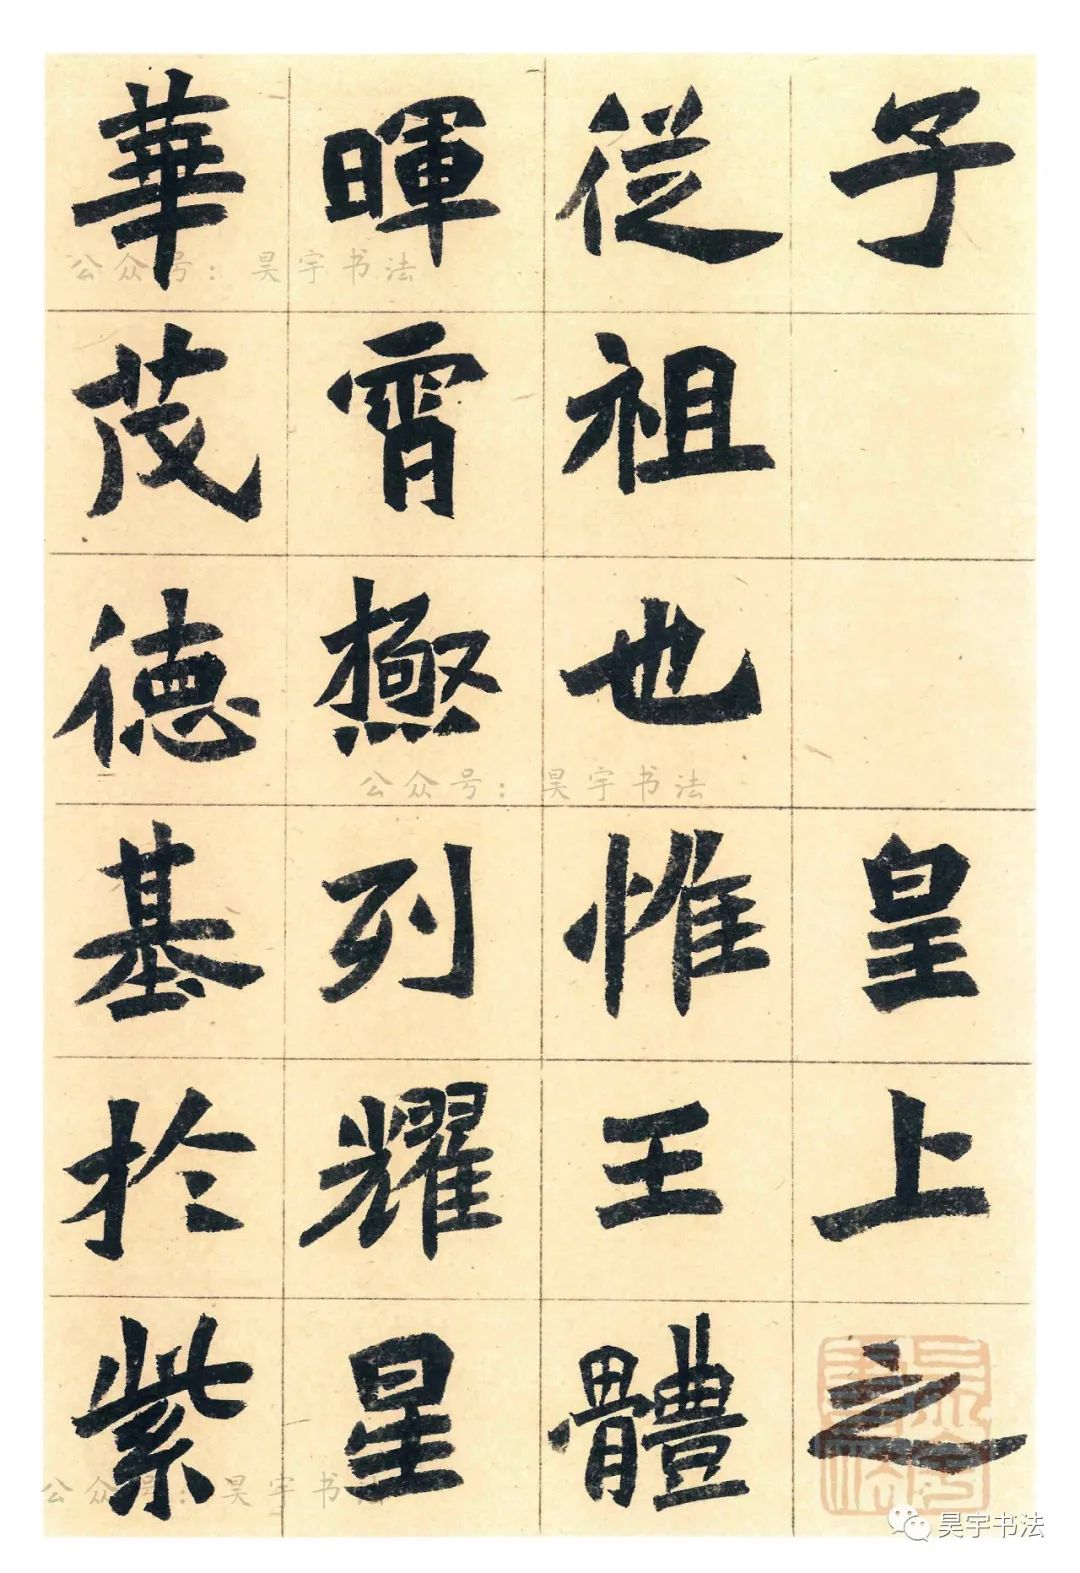 子皇上之
從祖也惟王體
暉霄極列耀星
華茂德基於紫
公众号：昊宇书法
公众号：昊宇书法
公众号：昊宇书法
昊宇书法